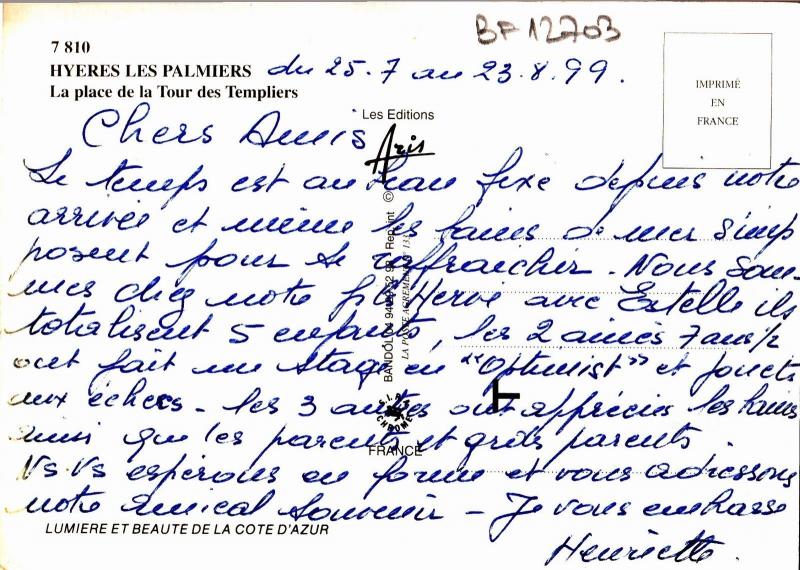 BF 12703
7 810
HYERES LES PALMIERS du 25.7 au 23.8.99.
La place de la Tour des Templiers
IMPRIMÉ
EN
FRANCE
Les Editions
Aris
Chers Amis
Le temps est au beau fixe depuis notre
arrivée et même les bains de mer s'imp
posent pour se raffraichir. Nous som-
mes chez notre fils Hervé avec Estelle ils
totalisent 5 enfants, les 2 ainés 7 ans ½
ont fait un stage en "Optimist" et
aux échecs - les 3 autres ont apprécié les bains
ainsi que les parents et grds parents.
Ns Vs espérons en forme et vous adressons
notre amical souvenir - Je vous embrasse
Henriette.
BANDOL 04 94 Reprint ©
LA POSTE AGREMENT N° 133
S.I.R.
CHROME
FRANCE
LUMIERE ET BEAUTE DE LA COTE D'AZUR